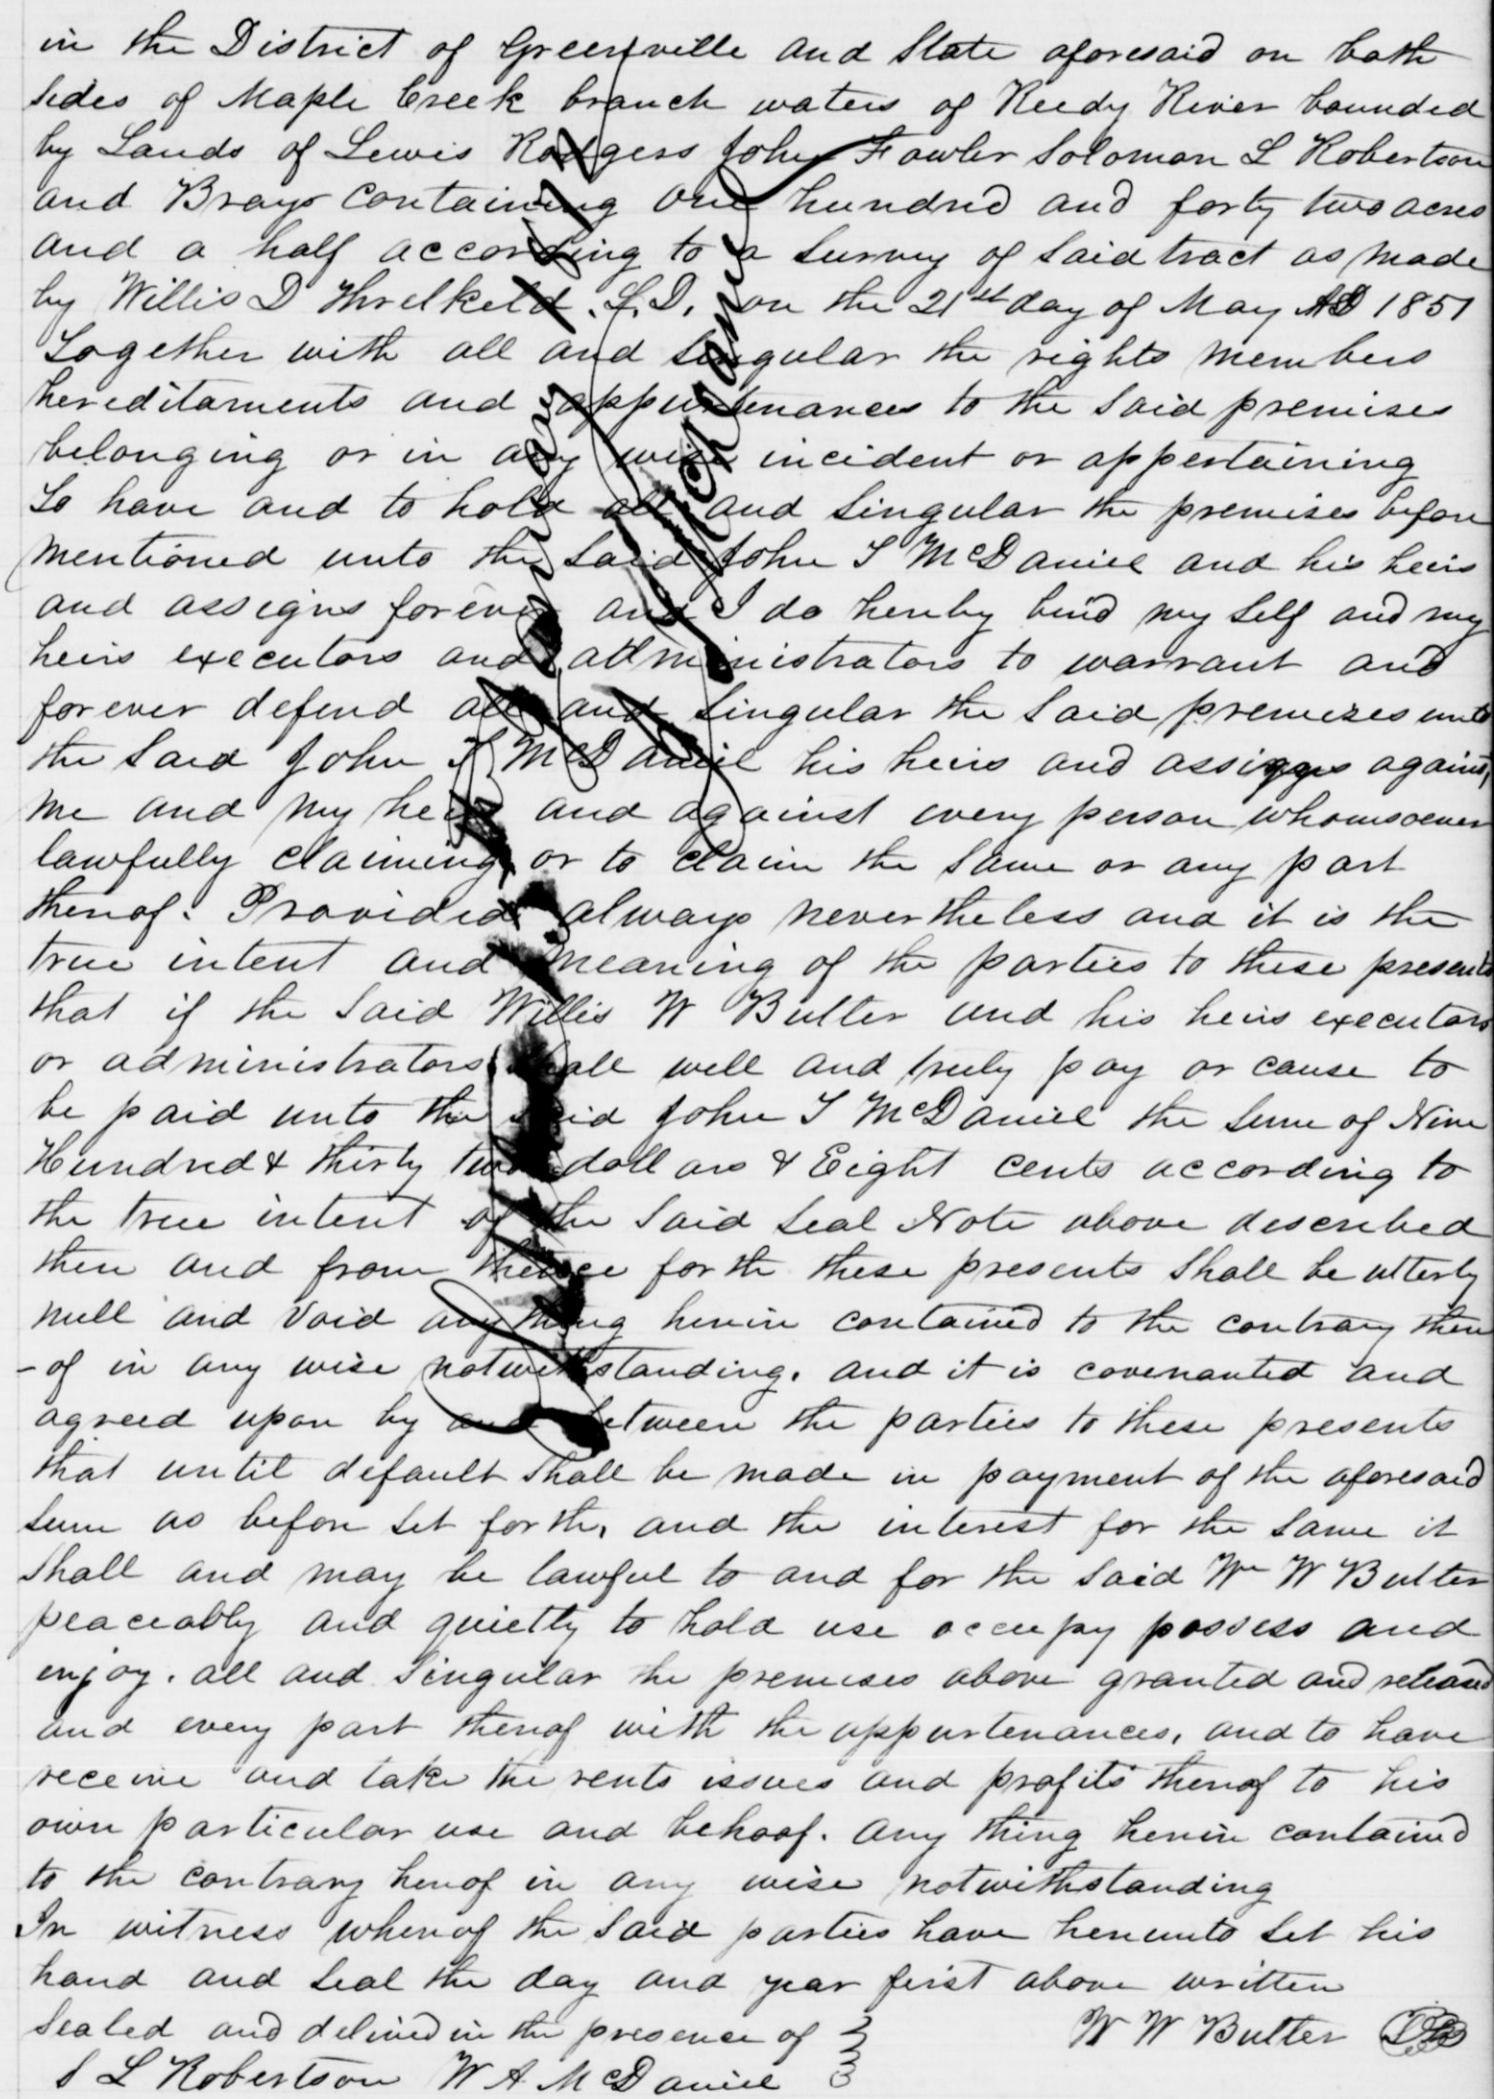 in the District of Greenville and State aforesaid on both
sides of Maple Creek branch waters of Reedy River bounded
by Lands of Lewis Rodgers John Fowler Soloman L Robertson
and Brays containing one hundred and forty two acres
and a half according to a survey of said tract as made
by Willis D Threlkeld. S.D. on the 21st day of May AD 1851
Together with all and singular the rights members
hereditaments and appurtenances to the said premises
belonging or in any wise incident or appertaining
To have and to hold all and singular the premises before
mentioned unto the said John T McDaniel and his heirs
and assigns forever and I do hereby bind my self and my
heirs executors and administrators to warrant and
forever defend all and singular the said premises unto
the said John T McDaniel his heirs and assigns against
me and my heirs and against every person whomsoever
lawfully claiming or to claim the same or any part
thereof. Provided always nevertheless and it is the
true intent and meaning of the parties to these presents
that if the said Willis W Butler and his heirs executors
or administrators shall well and truly pay or cause to
be paid unto the said John T McDaniel the sum of Nine
Hundred & thirty two dollars & Eight cents according to
the true intent of the said seal Note above described
then and from thence forth these presents shall be utterly
null and void any thing herein contained to the contrary there
-of in any wise notwithstanding. and it is covenanted and
agreed upon by and between the parties to these presents
that until default shall be made in payment of the aforesaid
sum as before set forth, and the interest for the same it
shall and may be lawful to and for the said Wm W Butler
peaceably and quietly to hold use occupy possess and
enjoy. all and singular the premises above granted and released
and every part thereof with the appurtenances, and to have
receive and take the rents issues and profits thereof to his
own particular use and behoof. any thing herein contained
to the contrary hereof in any wise notwithstanding
In witness whereof the said parties have hereunto set his
hand and seal the day and year first above written
Sealed and delivered in the presence of W W Butler
S L Robertson W A McDaniel